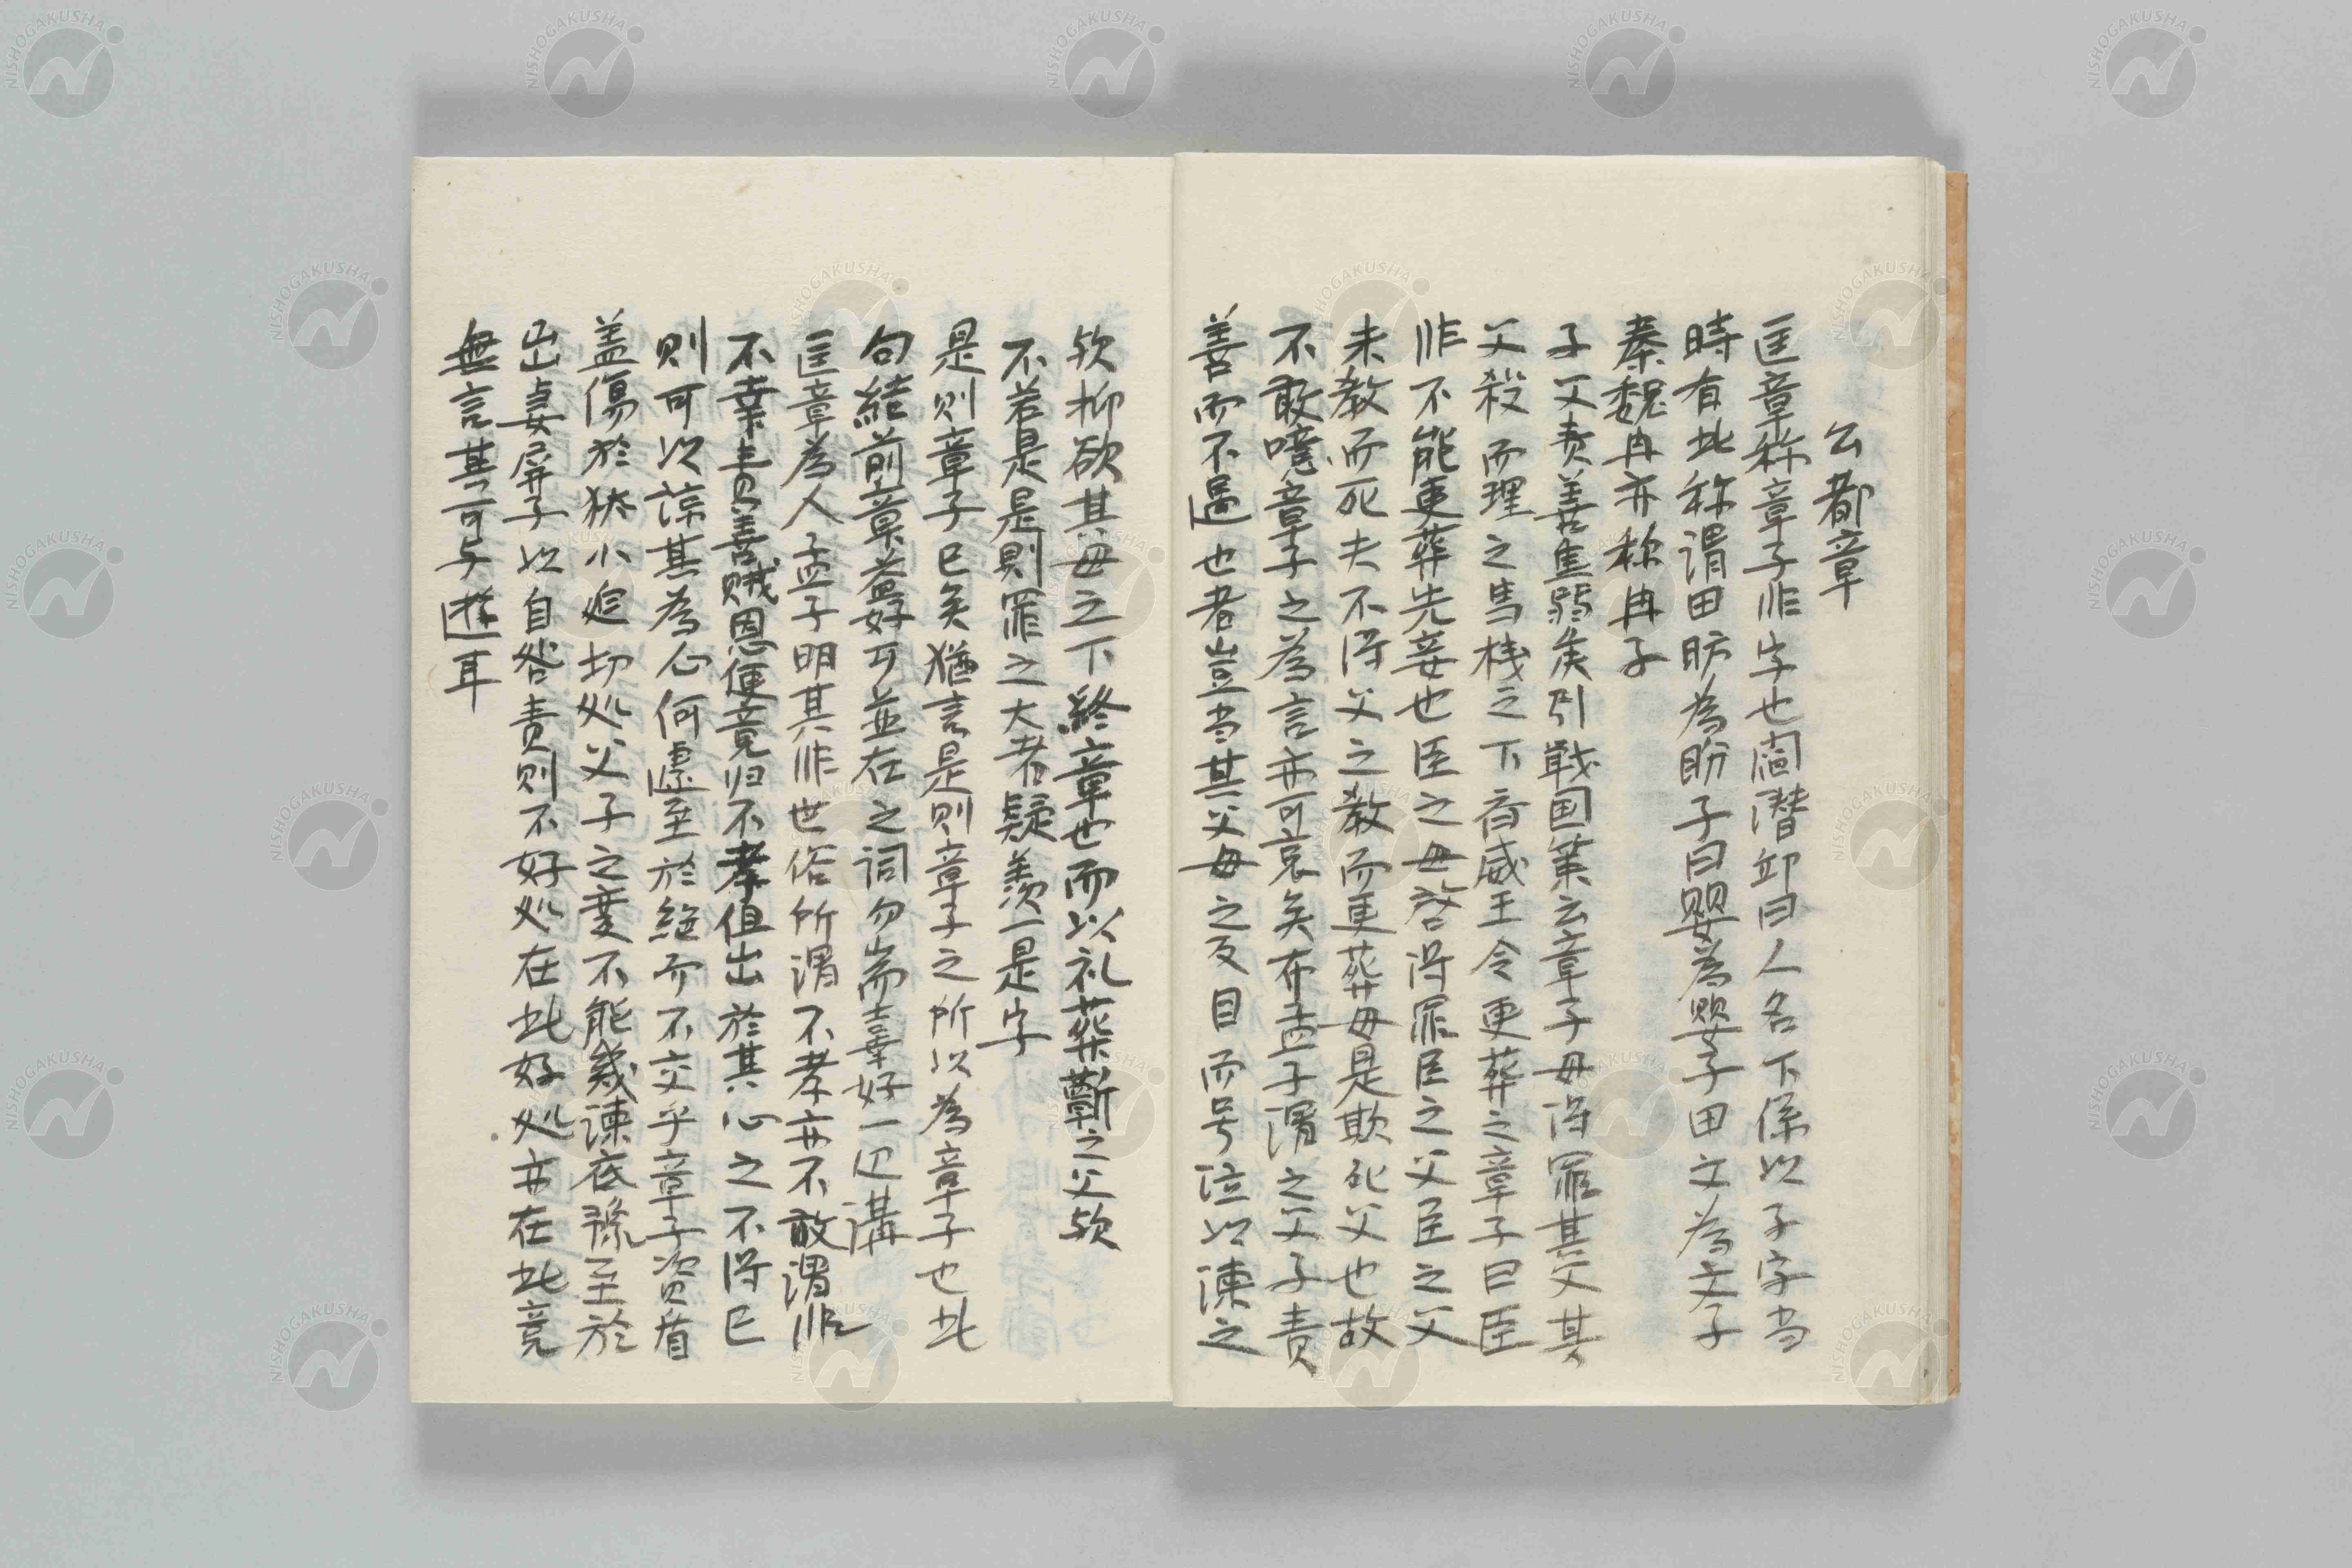 公都章
匡章称章子非字也閻潜邱曰人名下係以子字当
時有此称謂田盼為盼子曰嬰為嬰子田文為文子
秦魏冉亦称冉子
子父責善焦弱侯引戦国策云章子母得罪其父其
父殺而理之馬桟之下斉威王令更葬之章子曰臣
非不能更葬先妾也臣之母啓得罪臣之父臣之父
未教而死夫不得父之教而更葬母是欺死父也故
不敢噫章子之為言亦可哀矣亦孟子謂之父子責
善而不遇也者豈当其父母之反目而号泣以諫之
欤抑欲其母之下終章也而以礼葬蘄之父欤
不若是是則罪之大者疑羨一是字
是則章子已矣猶言是則章子之所以為章子也此
句結前章蓋好可並在之詞勿耑喜好一辺講
匡章為人孟子明其非世俗所謂不孝亦不敢謂非
不幸責善賊恩便竟归不孝但出於其心之不得已
則可以諒其為心何遽至於絶而不交乎章子資質
盖傷於狭小迫切処父子之変不能幾諫底豫至於
出妻屏子以自咎責則不好処在此好処亦在此竟
無言其可与遊耳
NISHOGAKUSHA